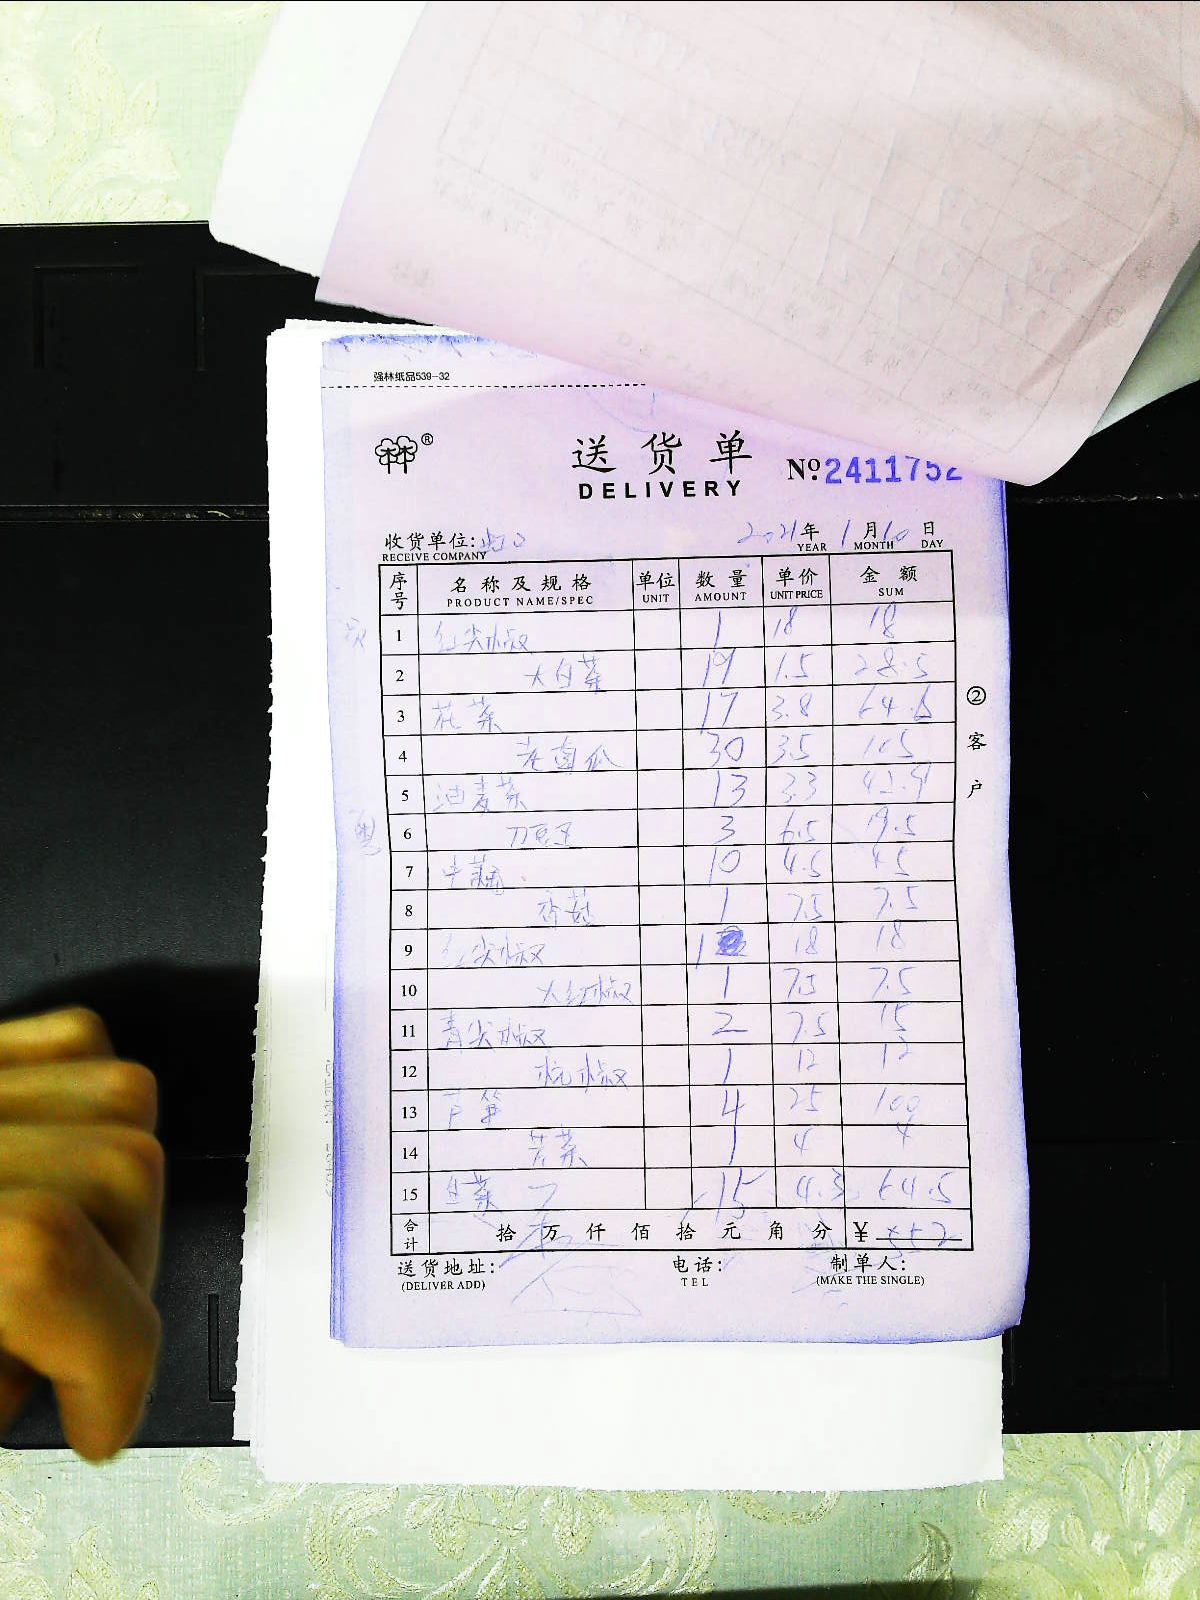 强林纸品539-32
林® 送货单 № 2411752
DELIVERY
收货单位: 2021年 1月10日
RECEIVE COMPANY YEAR MONTH DAY
序号 名称及规格 单位 数量 单价 金额
PRODUCT NAME/SPEC UNIT AMOUNT UNIT PRICE SUM
1 红尖椒 1 18 18
2 大白菜 19 1.5 28.5
3 花菜 17 3.8 64.6
4 老南瓜 30 3.5 105
5 油麦菜 13 3.3 42.9
6 刀豆 3 6.5 19.5
7 10 4.5 45
8 香菇 1 7.5 7.5
9 红尖椒 1 18 18
10 大红椒 1 7.5 7.5
11 青尖椒 2 7.5 15
12 杭椒 1 12 12
13 芦笋 4 25 100
14 1 4 4
15 生菜 15 4.3 64.5
合计 拾 万 仟 佰 拾 元 角 分 ¥ 552
②客户
送货地址: 电话: 制单人:
(DELIVER ADD) TEL (MAKE THE SINGLE)